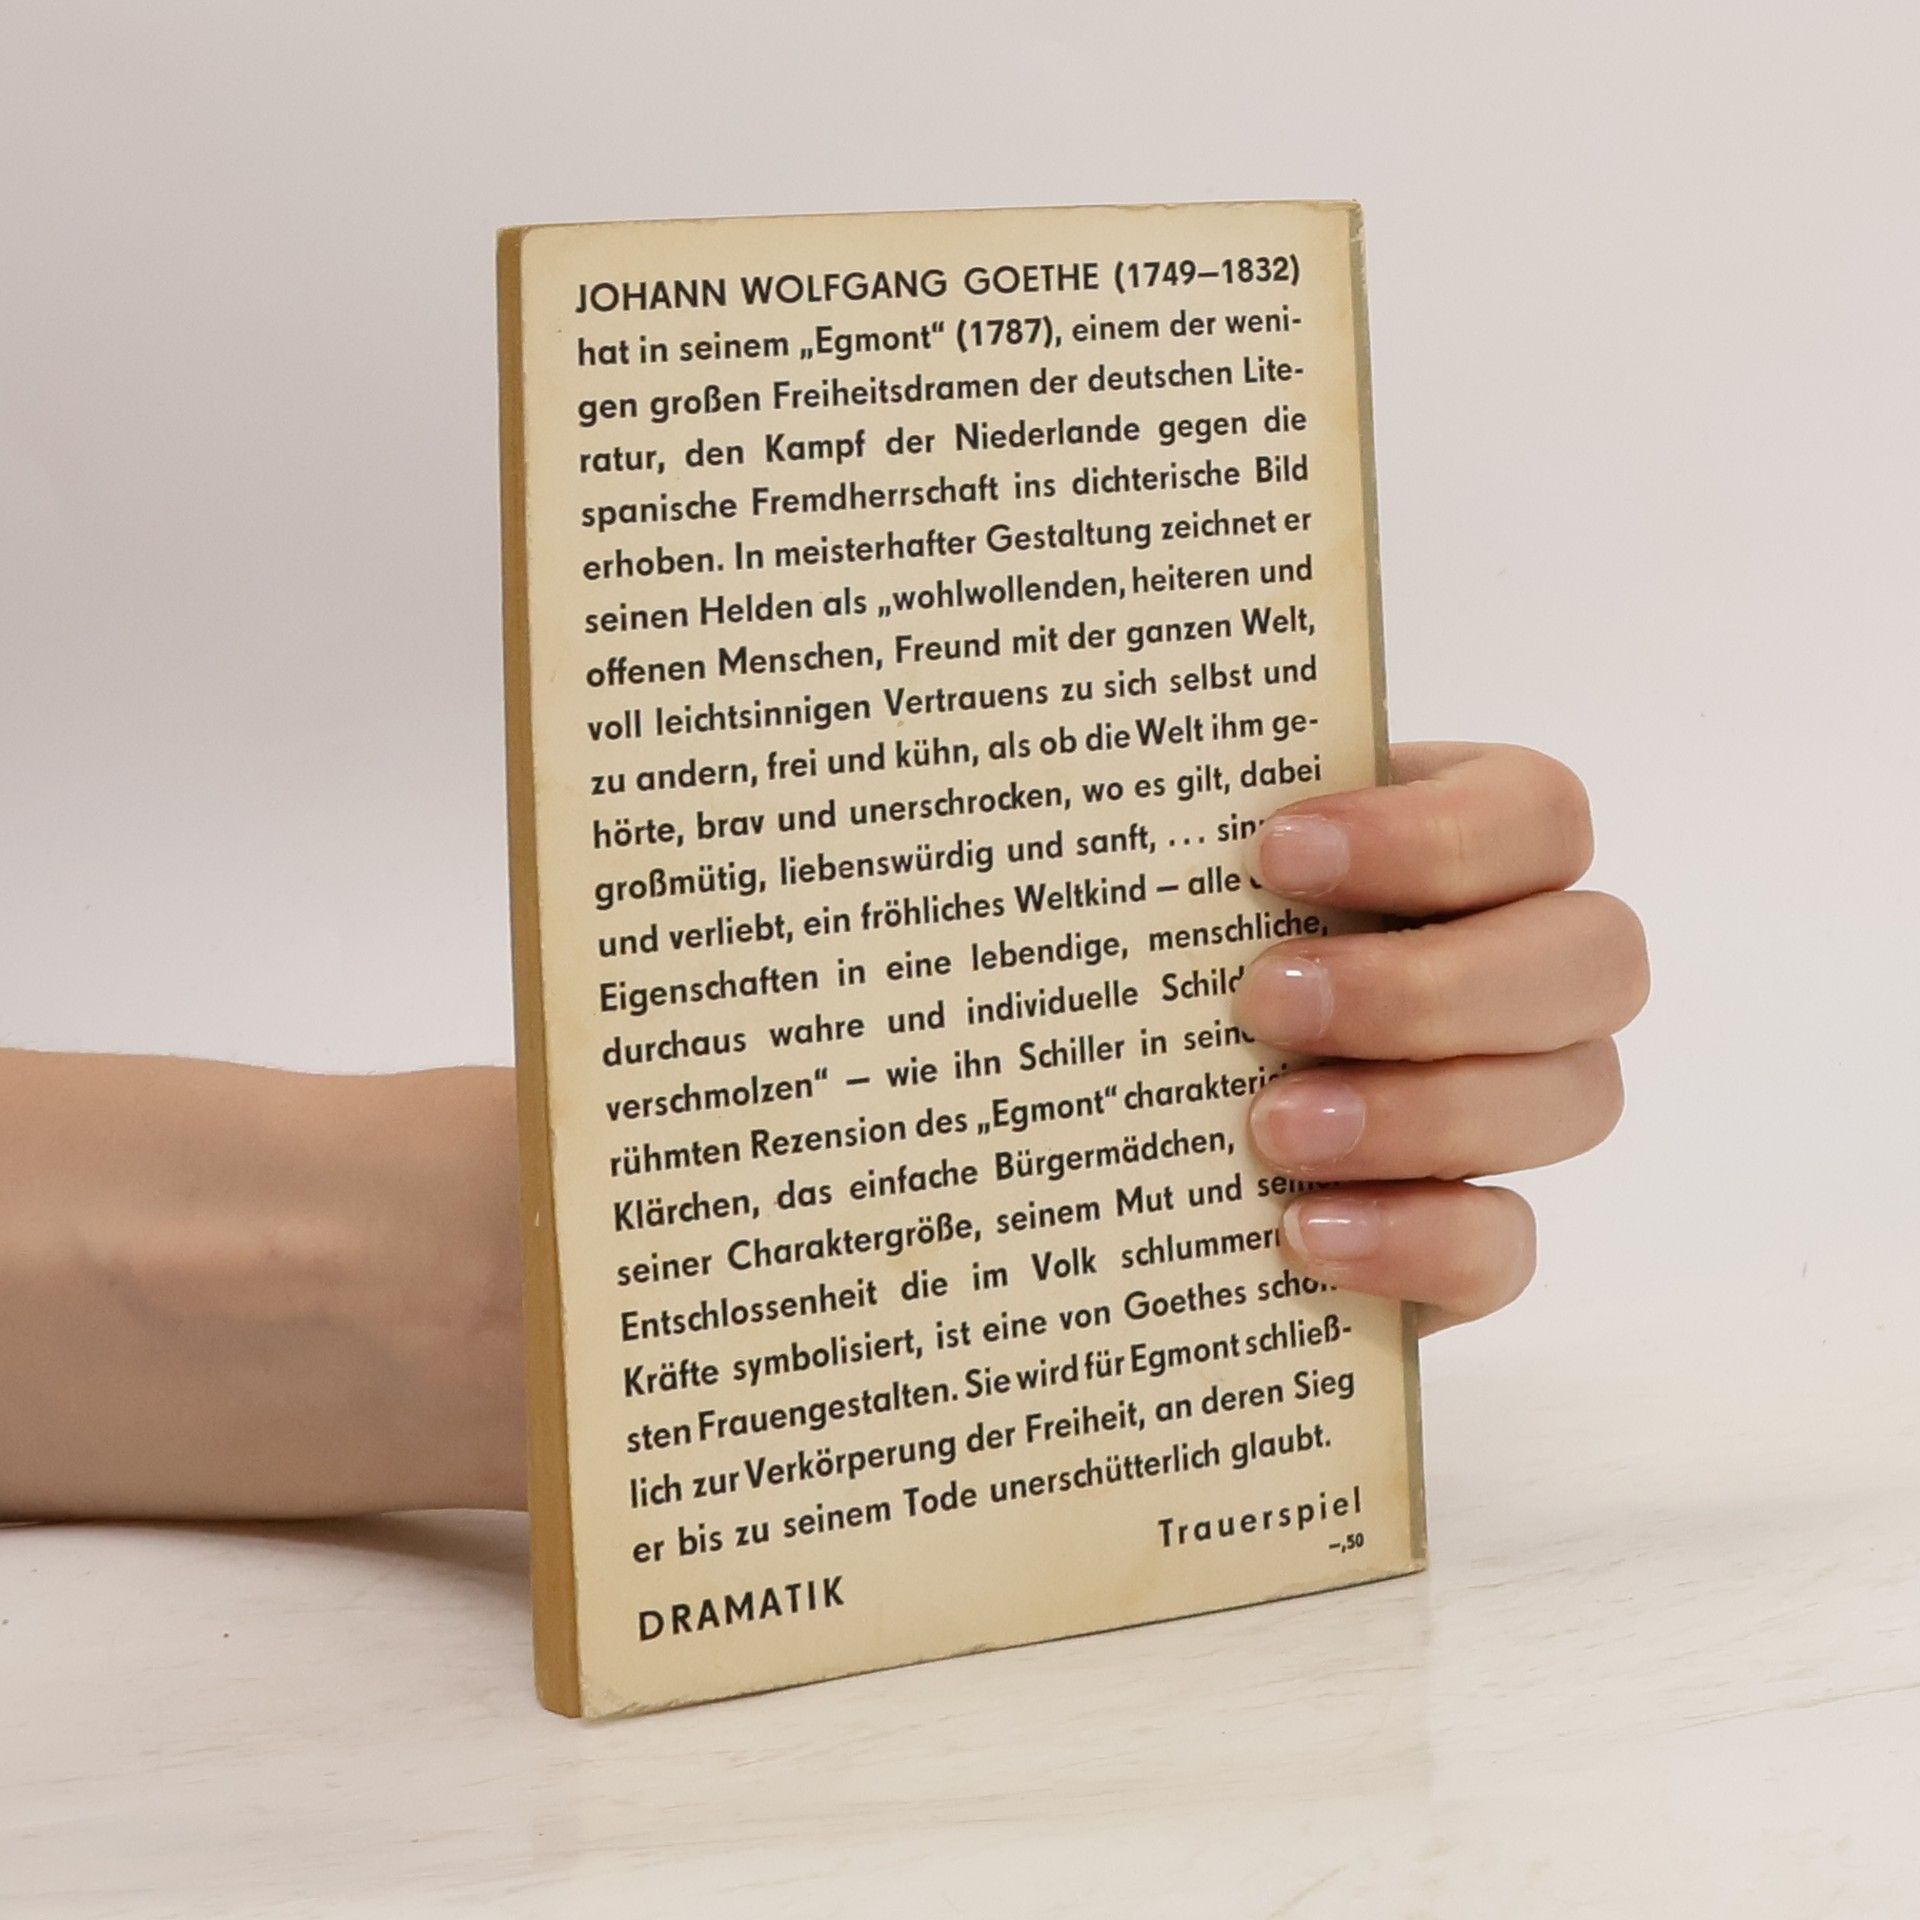 JOHANN WOLFGANG GOETHE (1749–1832)
hat in seinem „Egmont“ (1787), einem der weni-
gen großen Freiheitsdramen der deutschen Lite-
ratur, den Kampf der Niederlande gegen die
spanische Fremdherrschaft ins dichterische Bild
erhoben. In meisterhafter Gestaltung zeichnet er
seinen Helden als „wohlwollenden, heiteren und
offenen Menschen, Freund mit der ganzen Welt,
voll leichtsinnigen Vertrauens zu sich selbst und
zu andern, frei und kühn, als ob die Welt ihm ge-
hörte, brav und unerschrocken, wo es gilt, dabei
großmütig, liebenswürdig und sanft, ...
und verliebt, ein fröhliches Weltkind – alle
Eigenschaften in eine lebendige, menschliche,
durchaus wahre und individuelle
verschmolzen“ – wie ihn Schiller in
rühmten Rezension des „Egmont“
Klärchen, das einfache Bürgermädchen,
seiner Charaktergröße, seinem Mut und
Entschlossenheit die im Volk
Kräfte symbolisiert, ist eine von Goethes
sten Frauengestalten. Sie wird für Egmont schließ-
lich zur Verkörperung der Freiheit, an deren Sieg
er bis zu seinem Tode unerschütterlich glaubt.
Trauerspiel
–,50
DRAMATIK